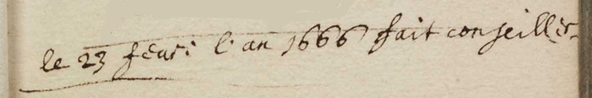 le 23 feuri l'an 1666 fait conseiller